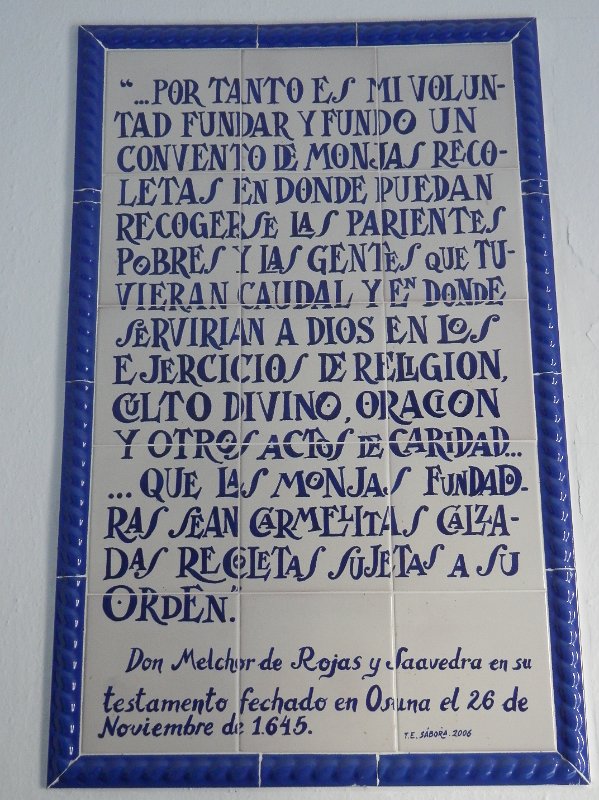 “...POR TANTO ES MI VOLUN-
TAD FUNDAR Y FUNDO UN
CONVENTO DE MONJAS RECO-
LETAS EN DONDE PUEDAN
RECOGERSE LAS PARIENTES
POBRES Y LAS GENTES QUE TU-
VIERAN CAUDAL Y EN DONDE
SERVIRIAN A DIOS EN LOS
EJERCICIOS DE RELIGION,
CULTO DIVINO, ORACION
Y OTROS ACTOS DE CARIDAD...
... QUE LAS MONJAS FUNDADO-
RAS SEAN CARMELITAS CALZA-
DAS RECOLETAS SUJETAS A SU
ORDEN.”
Don Melchor de Rojas y Saavedra en su
testamento fechado en Osuna el 26 de
Noviembre de 1.645.
T.E. SÁBORA. 2006